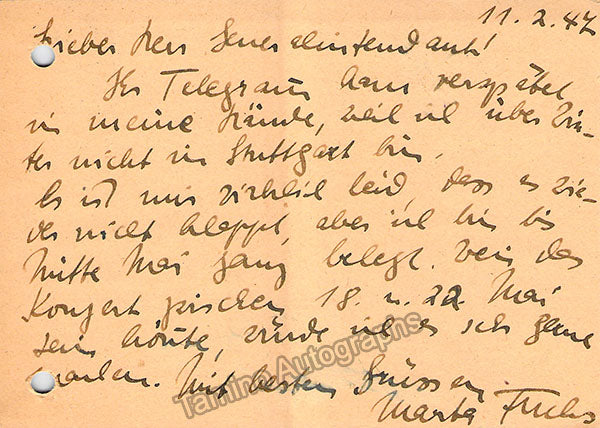 11. 2. 47
Lieber Herr Generalintendant!
Ihr Telegramm kam verspätet
in meine Hände, weil ich über Win-
ter nicht in Stuttgart bin.
Es ist mir wirklich leid, dass es wie-
der nicht klappt, aber ich bin bis
Mitte Mai ganz belegt. Wenn das
Konzert zwischen 18. u. 22. Mai
sein könnte, würde ich es sehr gerne
machen. Mit besten Grüssen
Marta Fuchs
Tamino Autographs